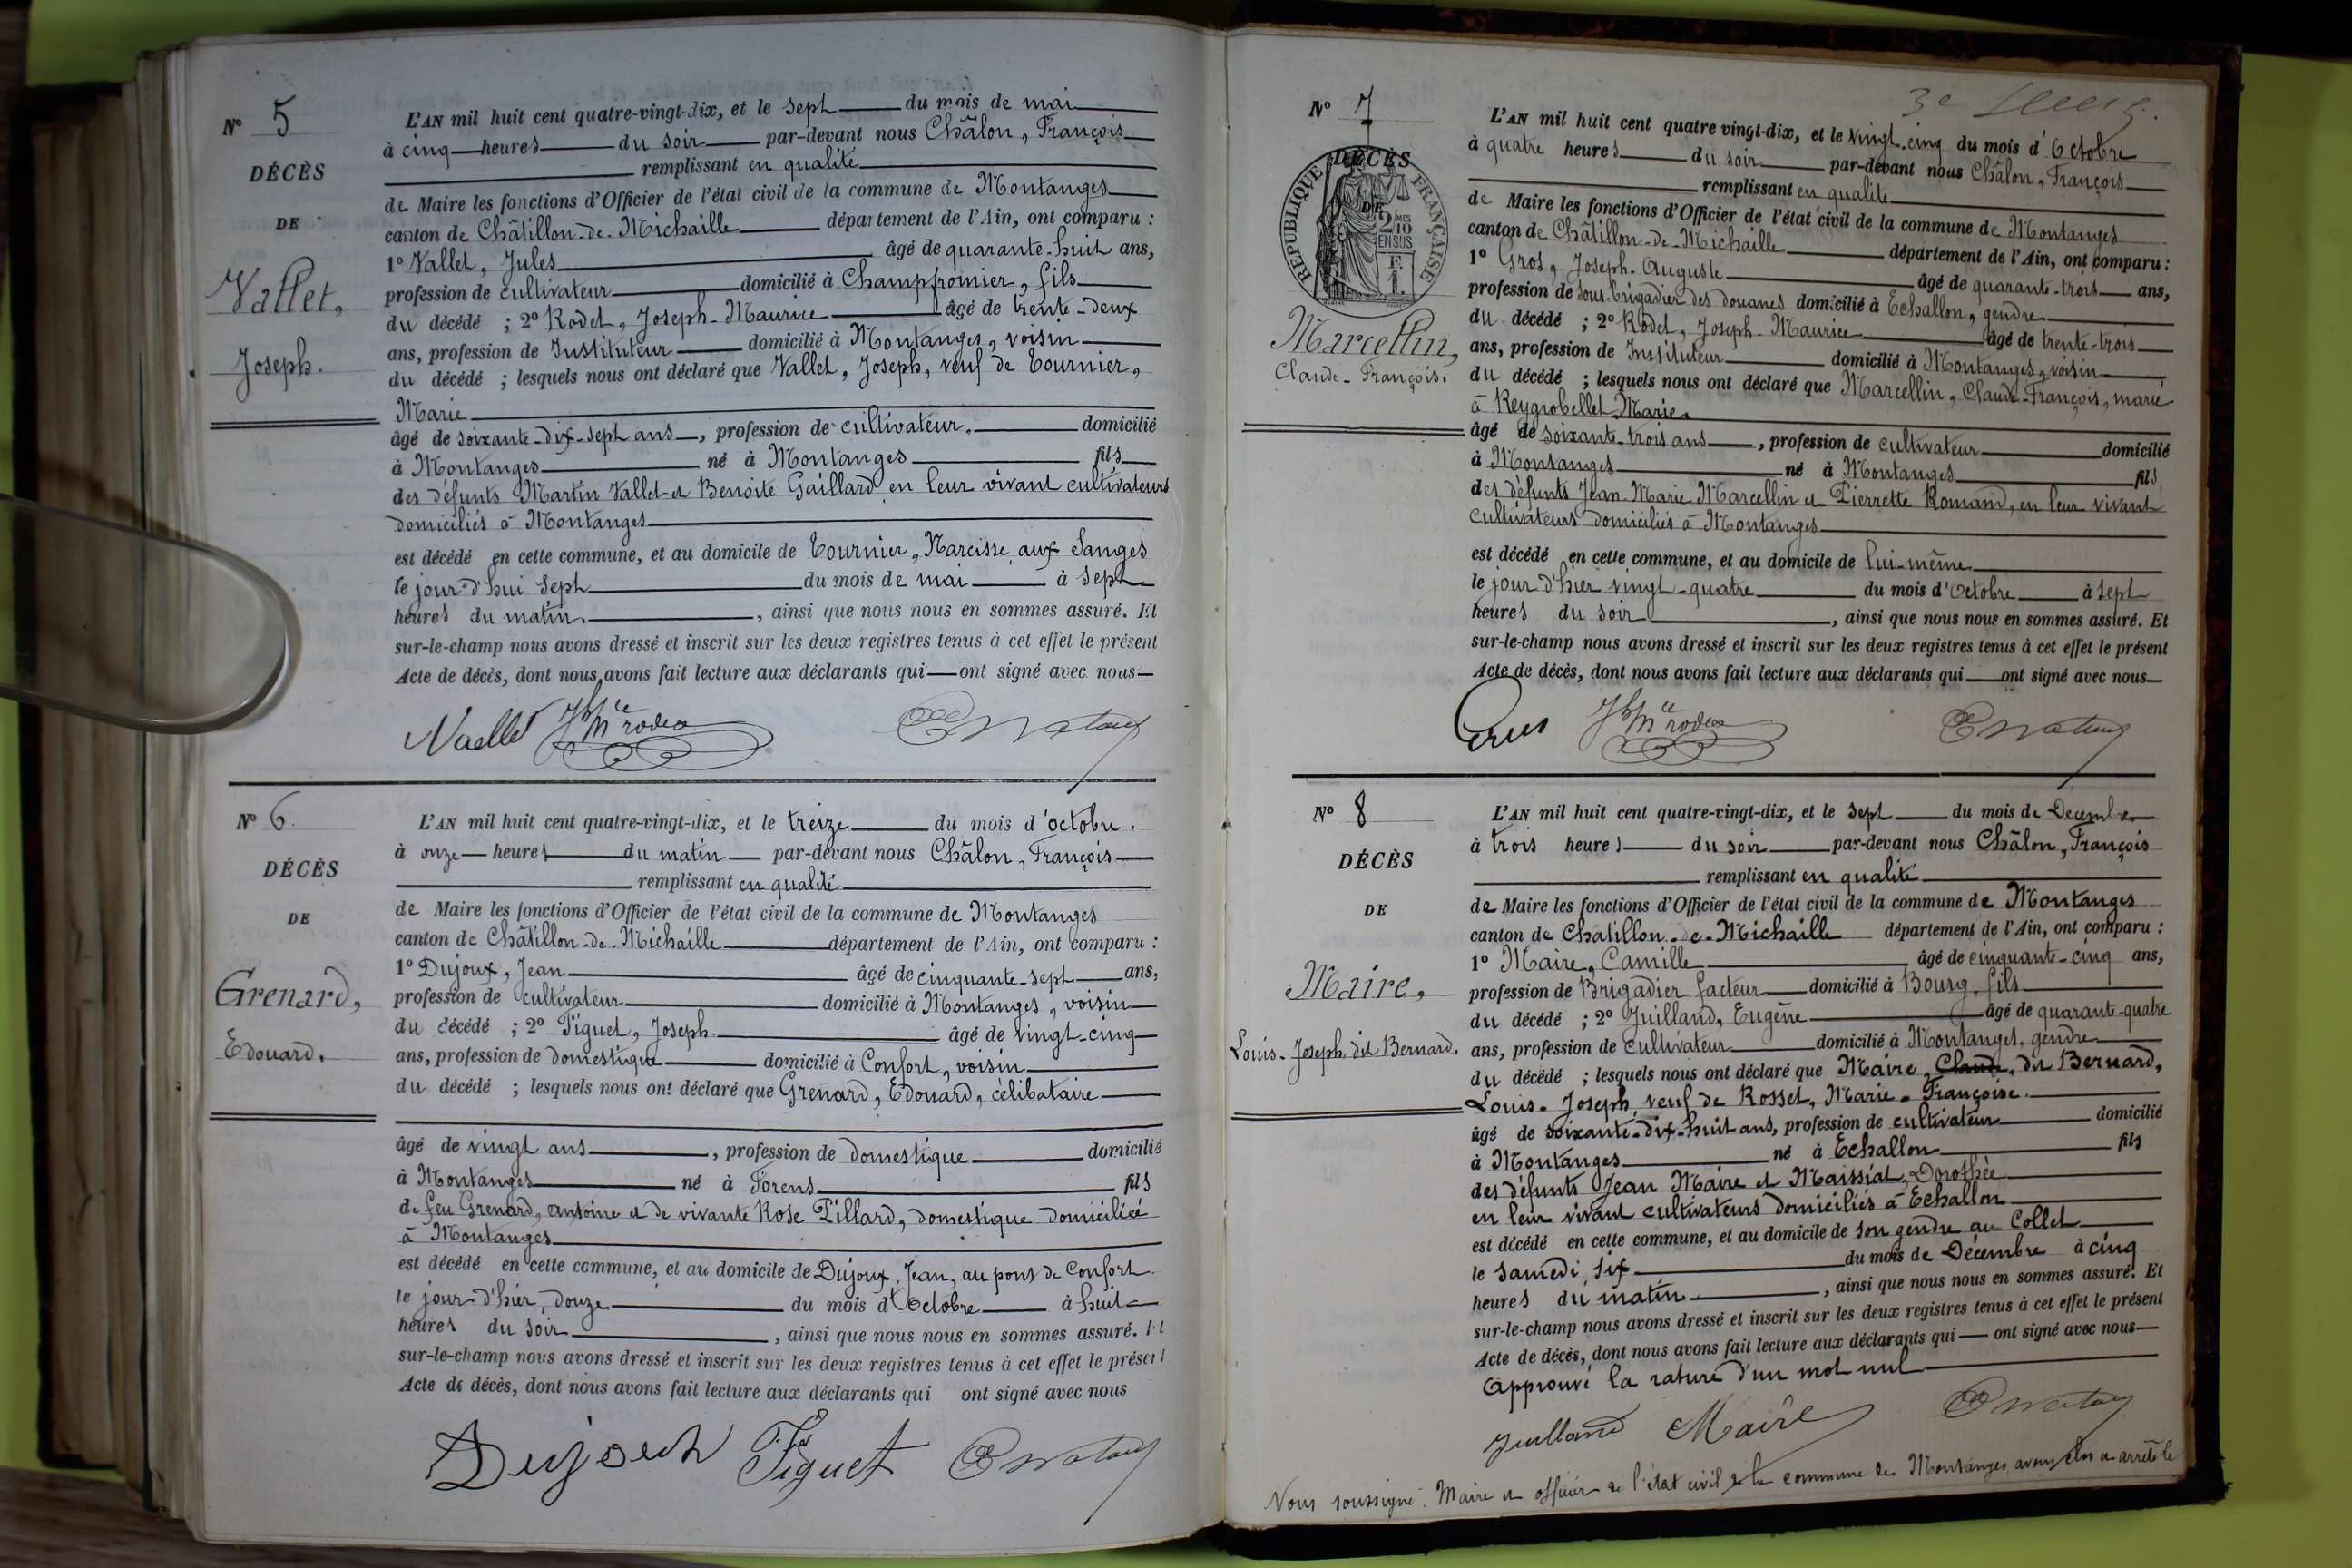 Nº 5
DÉCÈS
DE
Vallet,
Joseph.
L'AN mil huit cent quatre-vingt-dix, et le sept du mois de mai
à cinq heures du soir par-devant nous Châlon, François
remplissant en qualité
de Maire les fonctions d'Officier de l'état civil de la commune de Montanges
canton de Châtillon-de-Michaille département de l'Ain, ont comparu :
1º Vallet, Jules âgé de quarante-huit ans,
profession de cultivateur domicilié à Champfromier, fils
du décédé ; 2º Rodet, Joseph-Maurice âgé de trente-deux
ans, profession de Instituteur domicilié à Montanges, voisin
du décédé ; lesquels nous ont déclaré que Vallet, Joseph, veuf de Tournier,
Marie
âgé de soixante-dix-sept ans, profession de cultivateur, domicilié
à Montanges né à Montanges fils
des défunts Martin Vallet et Benoite Gaillard en leur vivant cultivateurs
domiciliés à Montanges
est décédé en cette commune, et au domicile de Tournier, Narcisse aux Sanges
le jour d'hui sept du mois de mai à sept
heures du matin. , ainsi que nous nous en sommes assuré. Et
sur-le-champ nous avons dressé et inscrit sur les deux registres tenus à cet effet le présent
Acte de décès, dont nous avons fait lecture aux déclarants qui ont signé avec nous
Nº 6.
DÉCÈS
DE
Grenard,
Edouard.
L'AN mil huit cent quatre-vingt-dix, et le treize du mois d'octobre.
à onze heures du matin par-devant nous Châlon, François
remplissant en qualité
de Maire les fonctions d'Officier de l'état civil de la commune de Montanges
canton de Châtillon-de-Michaille département de l'Ain, ont comparu :
1º Dujoux, Jean âgé de cinquante-sept ans,
profession de cultivateur domicilié à Montanges, voisin
du décédé ; 2º Figuet, Joseph. âgé de vingt-cinq
ans, profession de domestique domicilié à Confort, voisin
du décédé ; lesquels nous ont déclaré que Grenard, Edouard, célibataire
âgé de vingt ans , profession de domestique domicilié
à Montanges né à Forens fils
de feu Grenard, antoine et de vivante Rose Pillard, domestique domiciliée
à Montanges
est décédé en cette commune, et au domicile de Dujoux, Jean, au pont de Confort.
le jour d'hier, douze du mois d'Octobre à huit
heures du soir , ainsi que nous nous en sommes assuré. Et
sur-le-champ nous avons dressé et inscrit sur les deux registres tenus à cet effet le présent
Acte de décès, dont nous avons fait lecture aux déclarants qui ont signé avec nous
Dujoux Figuet
Nº 7
DÉCÈS
DE
RÉPUBLIQUE FRANÇAISE
2/10 MES
EN SUS
F.
1.
Marcellin,
Claude-François.
3e
L'AN mil huit cent quatre vingt-dix, et le vingt-cinq du mois d'Octobre
à quatre heures du soir par-devant nous Châlon, François
remplissant en qualité
de Maire les fonctions d'Officier de l'état civil de la commune de Montanges
canton de Châtillon-de-Michaille département de l'Ain, ont comparu :
1º Gros, Joseph-Auguste âgé de quarante-trois ans,
profession de sous-brigadier des douanes domicilié à Echallon, gendre
du décédé ; 2º Rodet, Joseph-Maurice âgé de trente-trois
ans, profession de Instituteur domicilié à Montanges, voisin
du décédé ; lesquels nous ont déclaré que Marcellin, Claude-François, marié
à Reygrobellet Marie.
âgé de soixante-trois ans , profession de cultivateur domicilié
à Montanges né à Montanges fils
des défunts Jean Marie Marcellin et Pierrette Romand, en leur vivant
cultivateurs domiciliés à Montanges
est décédé en cette commune, et au domicile de lui-même
le jour d'hier vingt-quatre du mois d'Octobre à sept
heures du soir , ainsi que nous nous en sommes assuré. Et
sur-le-champ nous avons dressé et inscrit sur les deux registres tenus à cet effet le présent
Acte de décès, dont nous avons fait lecture aux déclarants qui ont signé avec nous
Nº 8
DÉCÈS
DE
Maire,
Louis-Joseph dit Bernard.
L'AN mil huit cent quatre-vingt-dix, et le sept du mois de Décembre
à trois heures du soir par-devant nous Châlon, François
remplissant en qualité
de Maire les fonctions d'Officier de l'état civil de la commune de Montanges
canton de Chatillon-de-Michaille département de l'Ain, ont comparu :
1º Maire, Camille âgé de cinquante-cinq ans,
profession de Brigadier facteur domicilié à Bourg, fils
du décédé ; 2º Juilland, Eugène âgé de quarante-quatre
ans, profession de cultivateur domicilié à Montanges, gendre
du décédé ; lesquels nous ont déclaré que Maire, Claude, dit Bernard,
Louis-Joseph, veuf de Rosset, Marie-Françoise.
âgé de soixante-dix-huit ans, profession de cultivateur domicilié
à Montanges né à Echallon fils
des défunts Jean Maire et Maissiat, Dorothée
en leur vivant cultivateurs domiciliés à Echallon
est décédé en cette commune, et au domicile de son gendre au Collet
le samedi, six du mois de Décembre à cinq
heures du matin , ainsi que nous nous en sommes assuré. Et
sur-le-champ nous avons dressé et inscrit sur les deux registres tenus à cet effet le présent
Acte de décès, dont nous avons fait lecture aux déclarants qui ont signé avec nous
Approuvé la rature d'un mot nul
Juilland Maire
Nous soussigné, Maire et officier de l'état civil de la commune de Montanges, avons clos et arrêté le